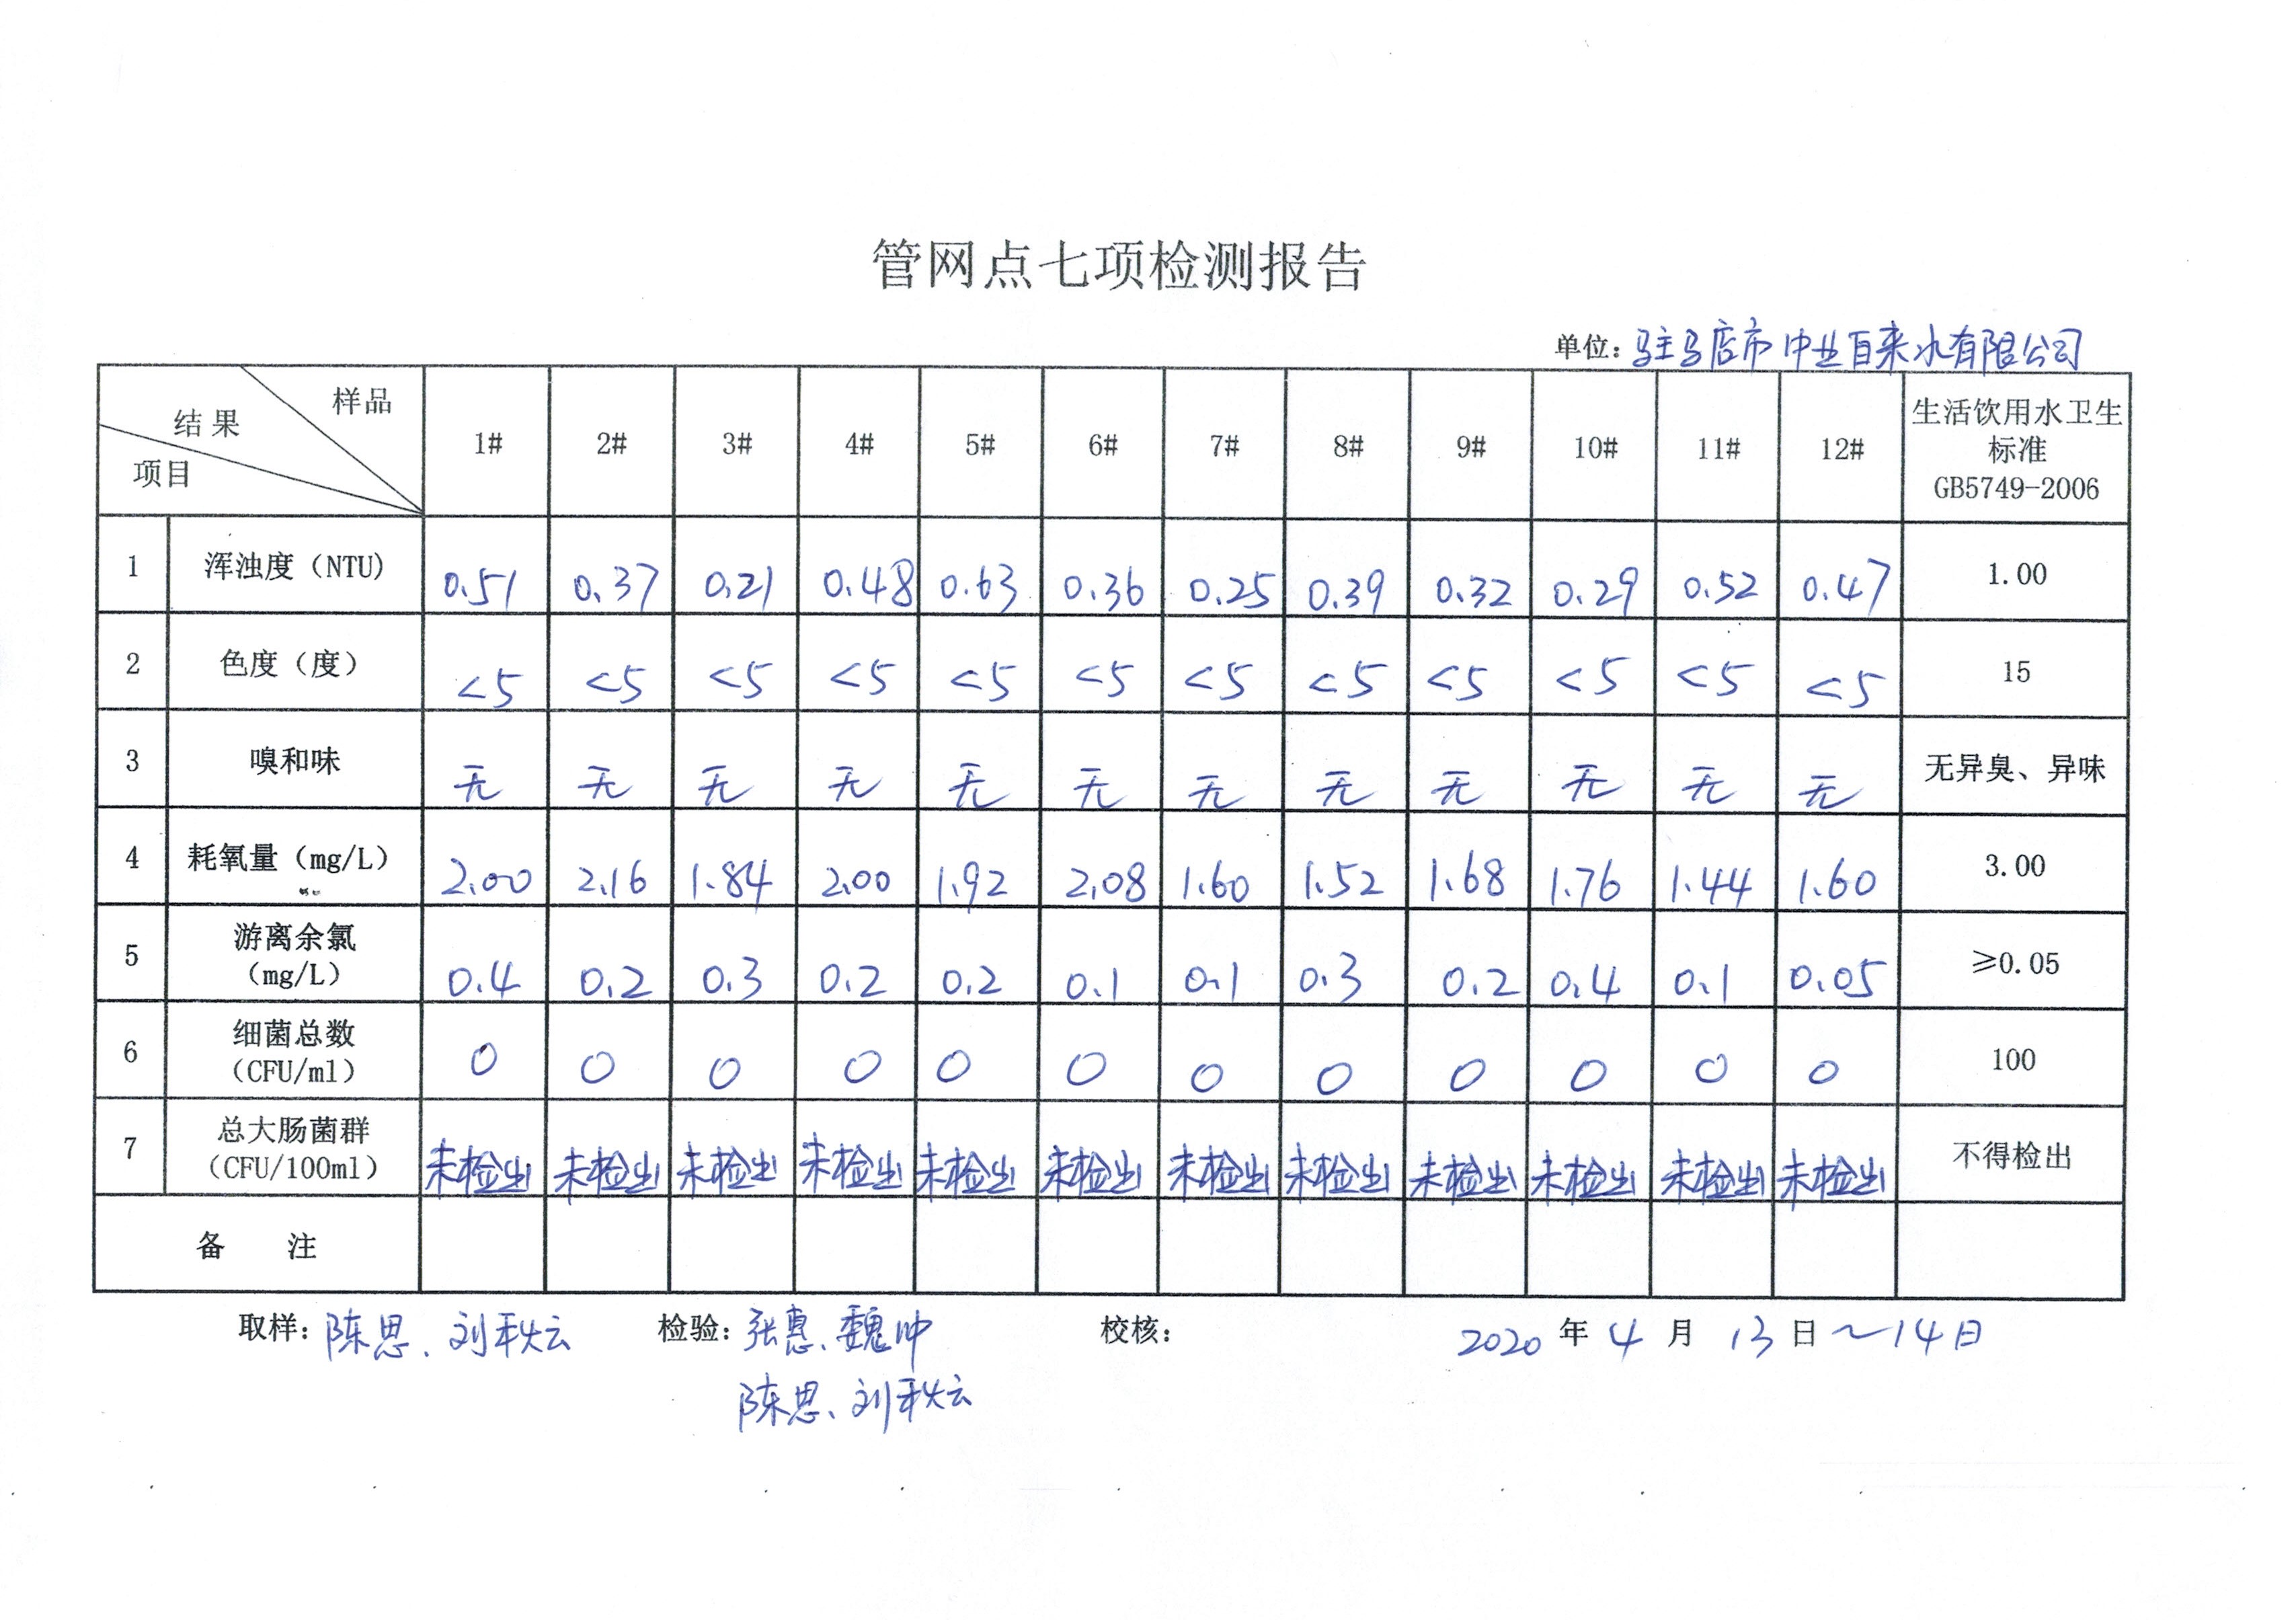 管网点七项检测报告
单位：驻马店市中业自来水有限公司
样品 结果 项目 1# 2# 3# 4# 5# 6# 7# 8# 9# 10# 11# 12# 生活饮用水卫生标准 GB5749-2006
1 浑浊度（NTU） 0.51 0.37 0.21 0.48 0.63 0.36 0.25 0.39 0.32 0.29 0.52 0.47 1.00
2 色度（度） <5 <5 <5 <5 <5 <5 <5 <5 <5 <5 <5 <5 15
3 嗅和味 无 无 无 无 无 无 无 无 无 无 无 无 无异臭、异味
4 耗氧量（mg/L） 2.00 2.16 1.84 2.00 1.92 2.08 1.60 1.52 1.68 1.76 1.44 1.60 3.00
5 游离余氯（mg/L） 0.4 0.2 0.3 0.2 0.2 0.1 0.1 0.3 0.2 0.4 0.1 0.05 ≥0.05
6 细菌总数（CFU/ml） 0 0 0 0 0 0 0 0 0 0 0 0 100
7 总大肠菌群（CFU/100ml） 未检出 未检出 未检出 未检出 未检出 未检出 未检出 未检出 未检出 未检出 未检出 未检出 不得检出
备 注
取样：陈思、刘秋云 检验：张惠、魏帅 校核： 2020年4月13日～14日
陈思、刘秋云